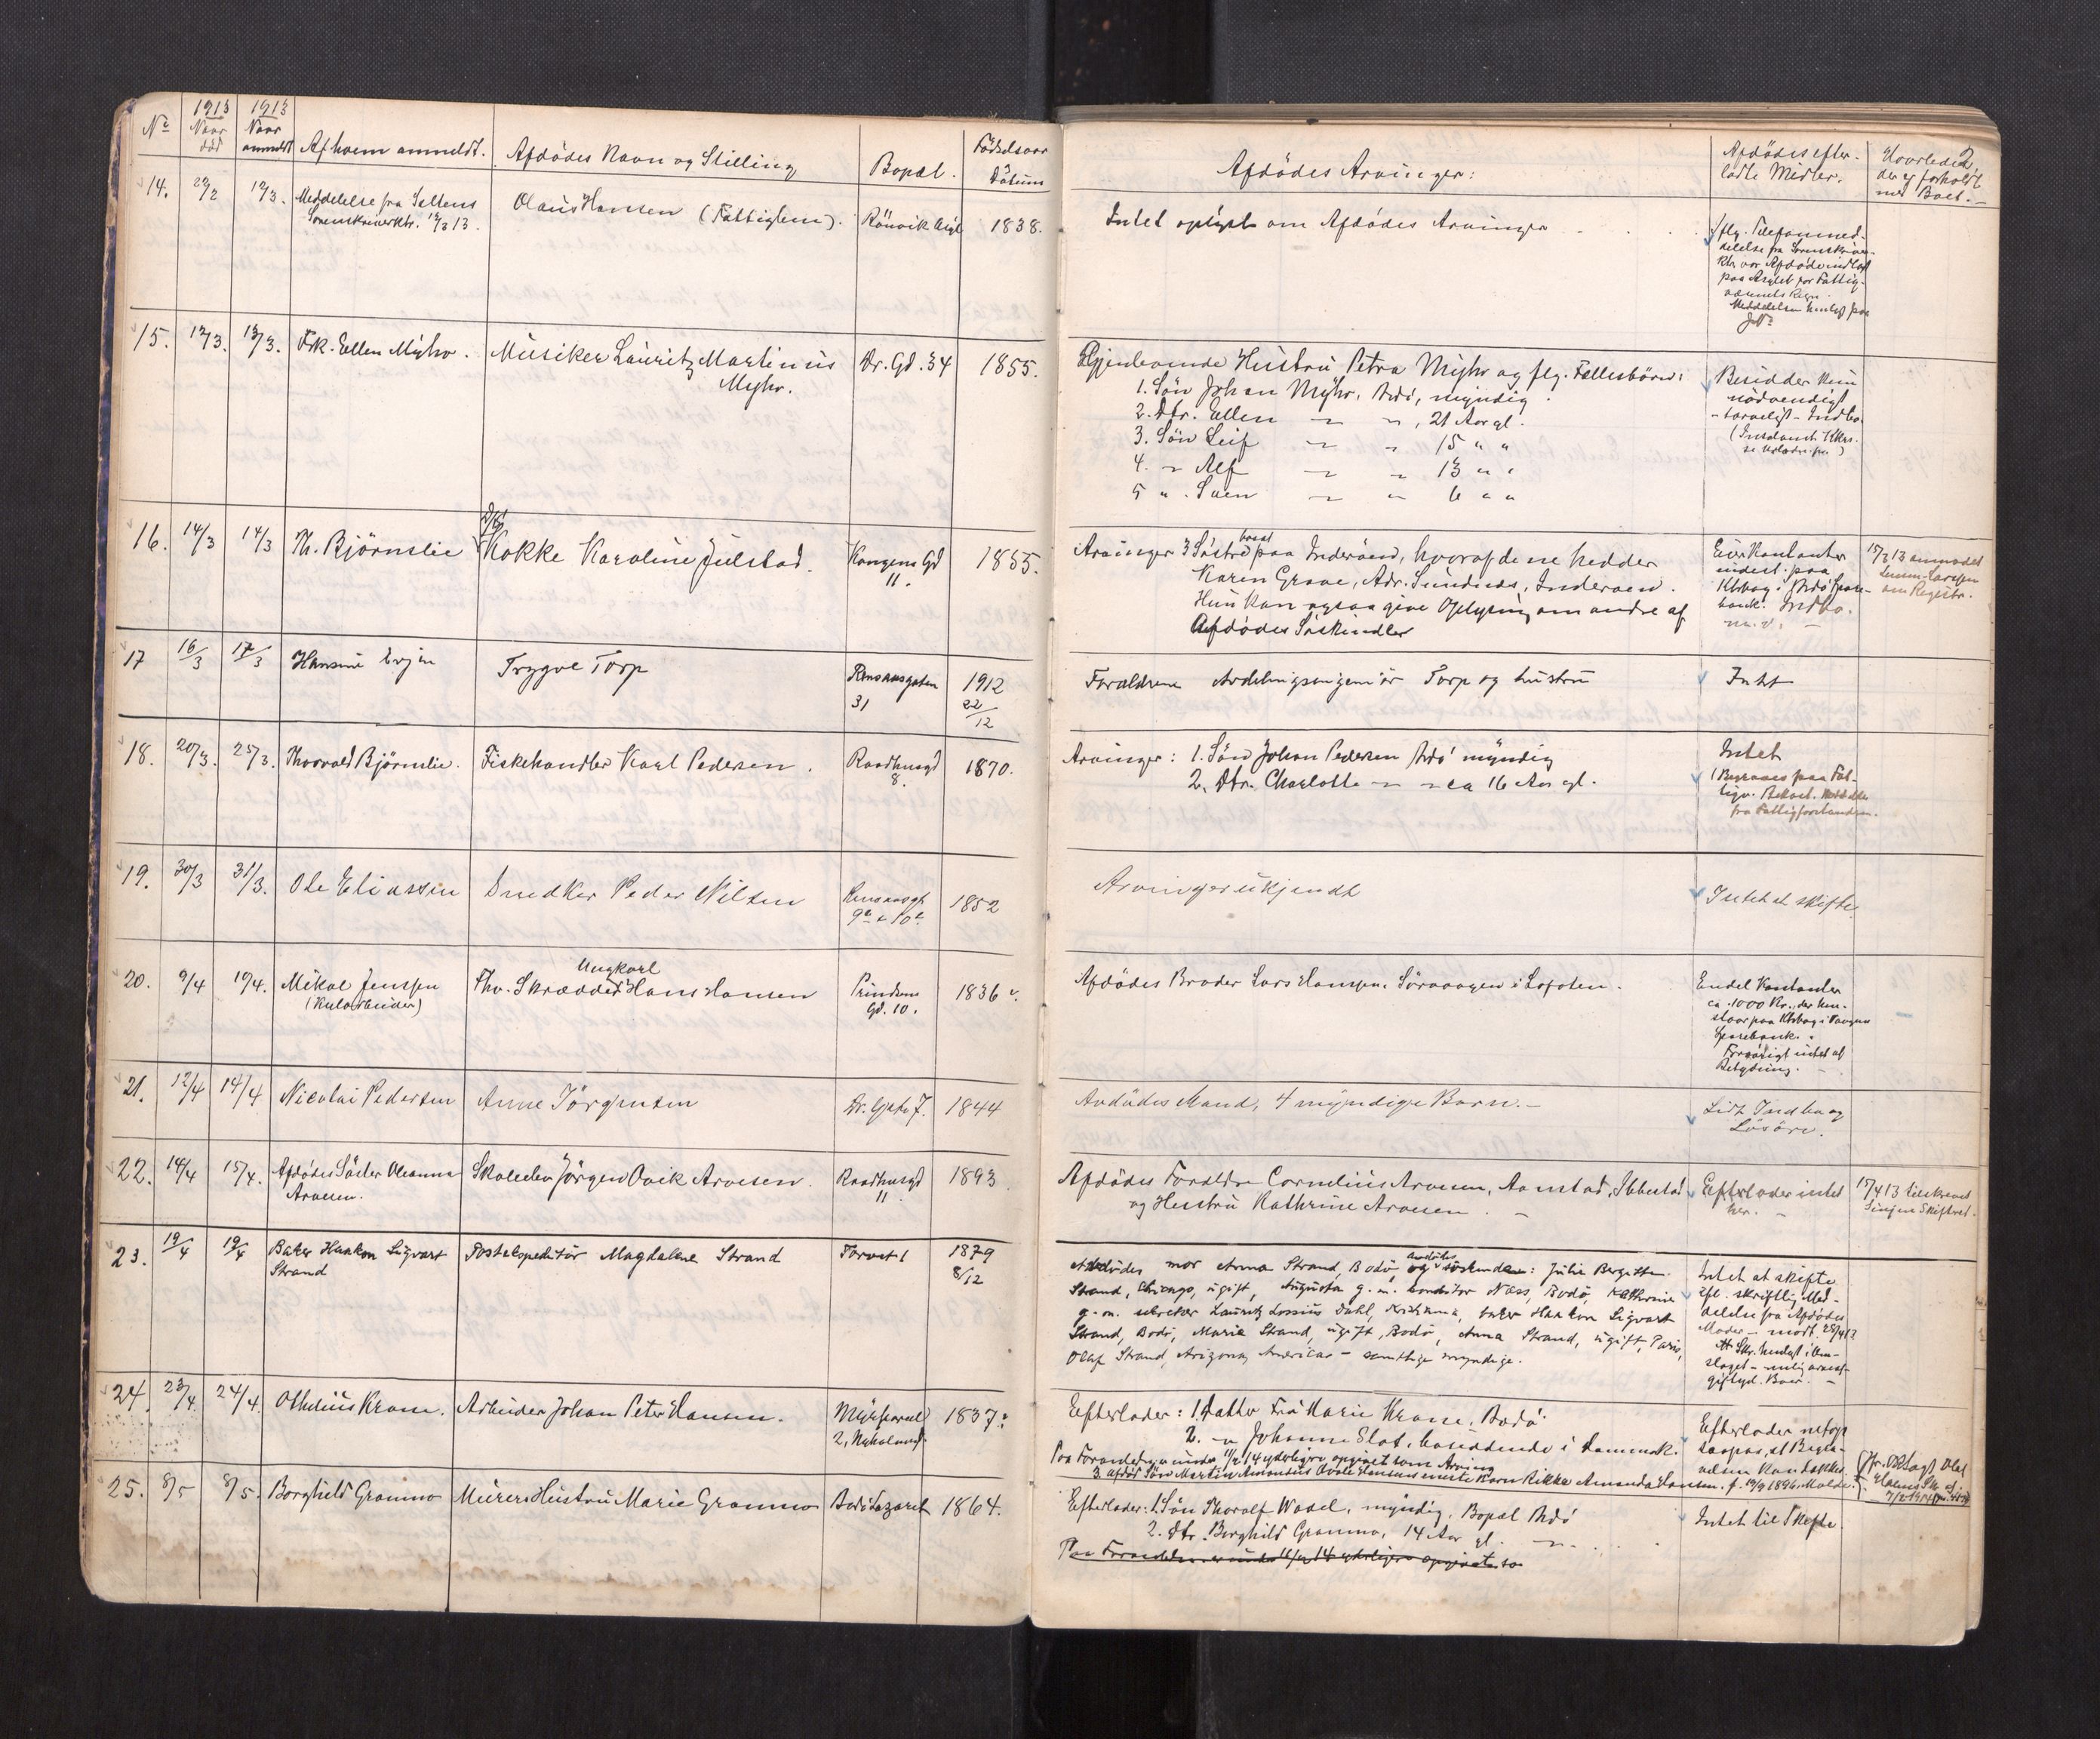 2
No 1913 Naar død 1913 Naar anmeldt Af hvem anmeldt. Afdødes Navn og Stilling Bopæl. Fødselsaar Datum Afdødes Arvinger: Afdødes efter-
ladte Midler. Hvorledes
der er forholdt
med Boet.
14. 12/3. Meddelelse fra Saltens
Sorenskriverktr. 12/3 13. Olaus Hansen (Fattiglem). Rönvik Asyl 1838.
Intet oplyst om Afdødes Arvinger
Iflg. Telefonmed-
delelse fra Sorenskriver-
ktr. var Afdøde indlagt
paa Asylet for Fattig-
væsenets Regn.
Meddelelsen henlagt paa
J.No
15. 12/3. 13/3. Frk. Ellen Myhr. Musiker Lauritz Martinus
Myhr. Dr. Gd. 34 1855.
Gjenlevende Hustru Petra Myhr og flg. Fællesbörn:
1. Sön Johan Myhr, Bodö, myndig.
2. Dtr. Ellen " " , 21 Aar gl.
3. Sön Leif " " 15 " "
4. " Alf " " 13 " "
5 " Sven " " 6 " "
Besidder kun
nödvendigt
- tarveligt - Indbo.
16. 14/3 14/3 Th. Björnslie Kokke Karoline Julstad. Kongens Gd
11. 1855.
Arvinger 3 Söstre bosat paa Inderöen, hvoraf den ene hedder
Karen Grave, Adr. Sundnes, Inderöen.
Hun kan ogsaa give Oplysning om andre af
Afdødes Söskende
Eier Kontanter
indest. paa
Ktrbog i Bodö Spare-
bank. Indbo.
m. v.
15/3 13 anmodet
Lensm. Larssen
om Registr.
17 16/3 17/3 Hansine Evjen Trygve Torp Rensaasgaten
31 1912
22/12
Forældrene Avdelingsingeniör Torp og hustru
Intet
18. 20/3. 25/3. Thorvald Björnslie. Fiskehandler Karl Pedersen. Raadhusgd
8. 1870.
Arvinger: 1. Sön Johan Pedersen Bodö myndig
2. Dtr. Charlotte " " ca 16 Aar gl.
Intet
(Begraves paa Fat-
tigv. Bekost. Meddelt
fra Fattigforstanderen.
19. 30/3 31/3. Ole Eliassen Snedker Peder Nilsen Rensaasgt
9a & 10a 1852
Arvinger ukjendt
Intet at skifte.
20. 9/4 10/4. Mikal Jenssen
(Kularbeider) Fhv. Skrædder Ungkarl Hans Hansen Prindsens
Gd. 10. 1836.
Afdödes Broder Lars Hansen, Sörvaagen i Lofoten.
Endel Kontanter
ca. 1000 Kr., der hen-
staar paa Ktrbog i Vaagan
Sparebank.
Forövrigt intet af
Betydning.
21. 12/4 14/4 Nicolai Pedersen Anne Jörgensen Dr. Gate 7. 1844
Avdödes Mand, 4 myndige Barn.-
Lidt Indbo og
Lösöre.
22. 14/4 15/4. Afdödes Söster Oleanna
Arvesen. Skoleelev Jörgen Ovik Arvesen. Raadhusgd
11 1893.
Afdödes Forældre Cornelius Arvesen, Aanstad, Ibbestad
og Hustru Kathrine Arvesen.
Efterlader intet
her.
17/4 13 tilskrevet
Senjen Skifteret.
23. 19/4 19/4 Baker Haakon Sigvart
Strand Postekspeditör Magdalene Strand Torvet 1 1879
8/12
Avdödes mor Anna Strand, Bodö og avdödes söskende: Julie Bergitte
Strand, Chicago, ugift, Augusta g. m. konditor Næss, Bodö, Kathrine
g. m. sekretær Lauritz Lossius Dahl, Kristiania, baker Haakon Sigvart
Strand, Bodö, Marie Strand, ugift, Bodö, Anna Strand, ugift, Paris,
Olaf Strand, Arizona, Amerika - samtlige myndige.
Intet at skifte
Efl. skriftlig Med-
delelse fra Afdödes
Moder - modt. 25/4 13
24. 23/4. 24/4. Othelius Krane. Arbeider Johan Peter Hansen. Myrspoveal
2, Nyholmen. 1837.
Efterlader: 1. Datter Fru Marie Krane, Bodö.
2. " Johanne Slot, bosiddende i Danmark.
Paa Foranledning under 11/2 14 yderligere opgivet som Arving
3 afdød Sön Martin Amandus Ovale Hansens eneste Barn Rikka Amanda Hansen. f. 19/9 1896, Molde.
Efterlader netop
saapas, at Begra-
velsen kan dækkes.
25. 8/5 8/5. Borghild Gramno Murers Hustru Marie Gramno Bodö Lazaret 1864.
Efterlader: 1. Sön Thoralf Wadel, myndig, Bopæl Bodö
2. Dtr. Borghild Gramno, 14 Aar gl. " "
Paa Foranledn. er under 11/2 14 yderligere opgivet so
Intet til Skifte.